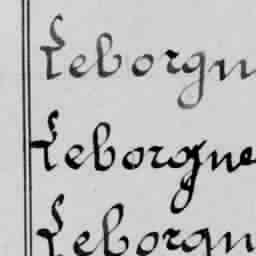 Leborgn
Leborgne
Leborgn